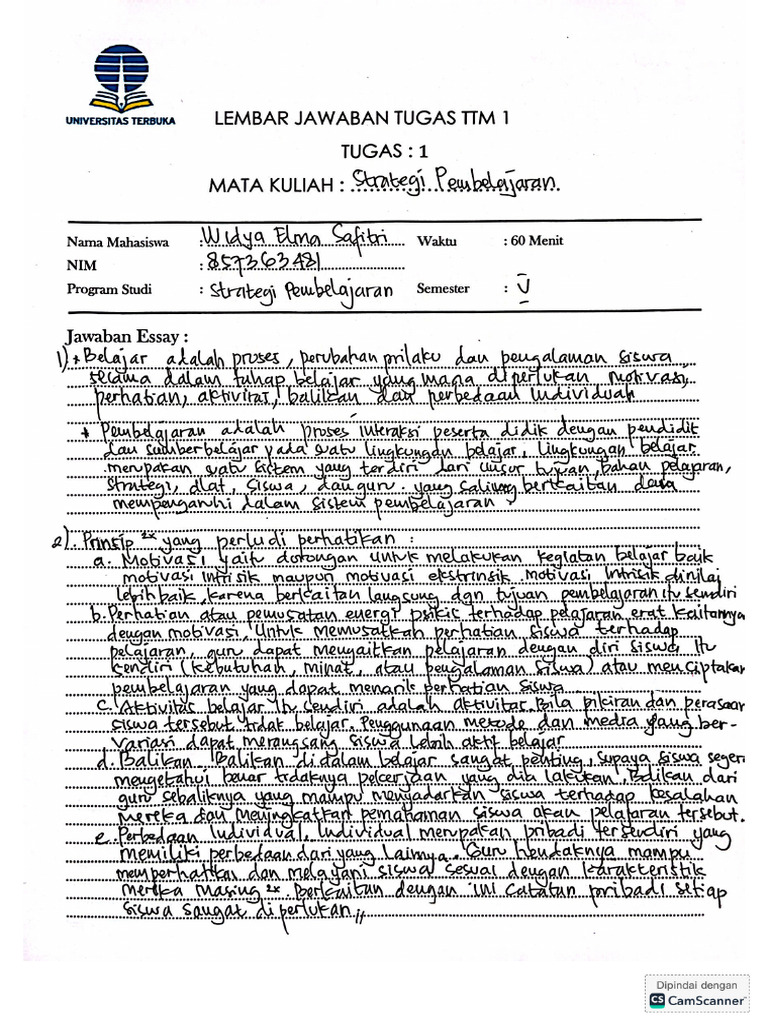 UNIVERSITAS TERBUKA
LEMBAR JAWABAN TUGAS TTM 1
TUGAS : 1
MATA KULIAH : Strategi Pembelajaran.
Nama Mahasiswa : Widya Elma Safitri Waktu : 60 Menit
NIM : 857363481
Program Studi : Strategi Pembelajaran Semester : V
Jawaban Essay :
1) * Belajar adalah proses, perubahan prilaku dan pengalaman siswa
selama dalam tahap belajar yang mana diperlukan motivasi,
perhatian, aktivitas, balikan dan perbedaan individuah
* Pembelajaran adalah proses interaksi peserta didik dengan pendidit
dan sumber belajar pada suatu lingkungan belajar, lingkungan belajar
merupakan suatu sistem yang terdiri dari unsur tujuan, bahan pelajaran,
strategi, alat, siswa, dan guru. yang saling berkaitan dana
mempengaruhi dalam sistem pembelajaran.
2). Prinsip 2x yang perlu di perhatikan :
a. Motivasi yaitu dorongan untuk melakukan kegiatan belajar baik
motivasi intrisik maupun motivasi ekstrinsik. motivasi Intrisik dinilai
lebih baik, karena berkaitan langsung dgn tujuan pembelajaran itu sendiri
b. Perhatian atau pemusatan energi psikic terhadap pelajaran erat kaitannya
dengan motivasi, Untuk memusatkah perhatian siswa terhadap
pelajaran, guru dapat mengaitkan pelajaran dengan diri siswa itu
sendiri (kebutuhah, minat, atau pengalaman siswa) atau menciptakan
pembelajaran yang dapat menarik perhatian siswa
c. Aktivitas belajar itu sendiri adalah aktivitas. Bila pikiran dan perasaan
siswa tersebut tidak belajar. Penggunaan metode dan media yang ber-
variasi dapat merangsang siswa lebih aktif belajar
d. Balikan. Balikan di dalam belajar sangat penting, supaya siswa segera
mengetahui benar tidaknya pekerjaan yang dia lakukan. Balikan dari
guru sebaliknya yang mampu menyadarkan siswa terhadap kesalahan
mereka dan meningkatkan pemahaman siswa akan pelajaran tersebut.
e. Perbedaan Individual. Individual merupakan pribadi tersendiri yang
memiliki perbedaan dari yang lainnya. Guru hendaknya mampu
memperhatikan dan melayani siswa sesuai dengan karakteristik
mereka masing 2x. Berkaitan dengan ini catatan pribadi setiap
siswa sangat diperlukan,,
Dipindai dengan
CS CamScanner